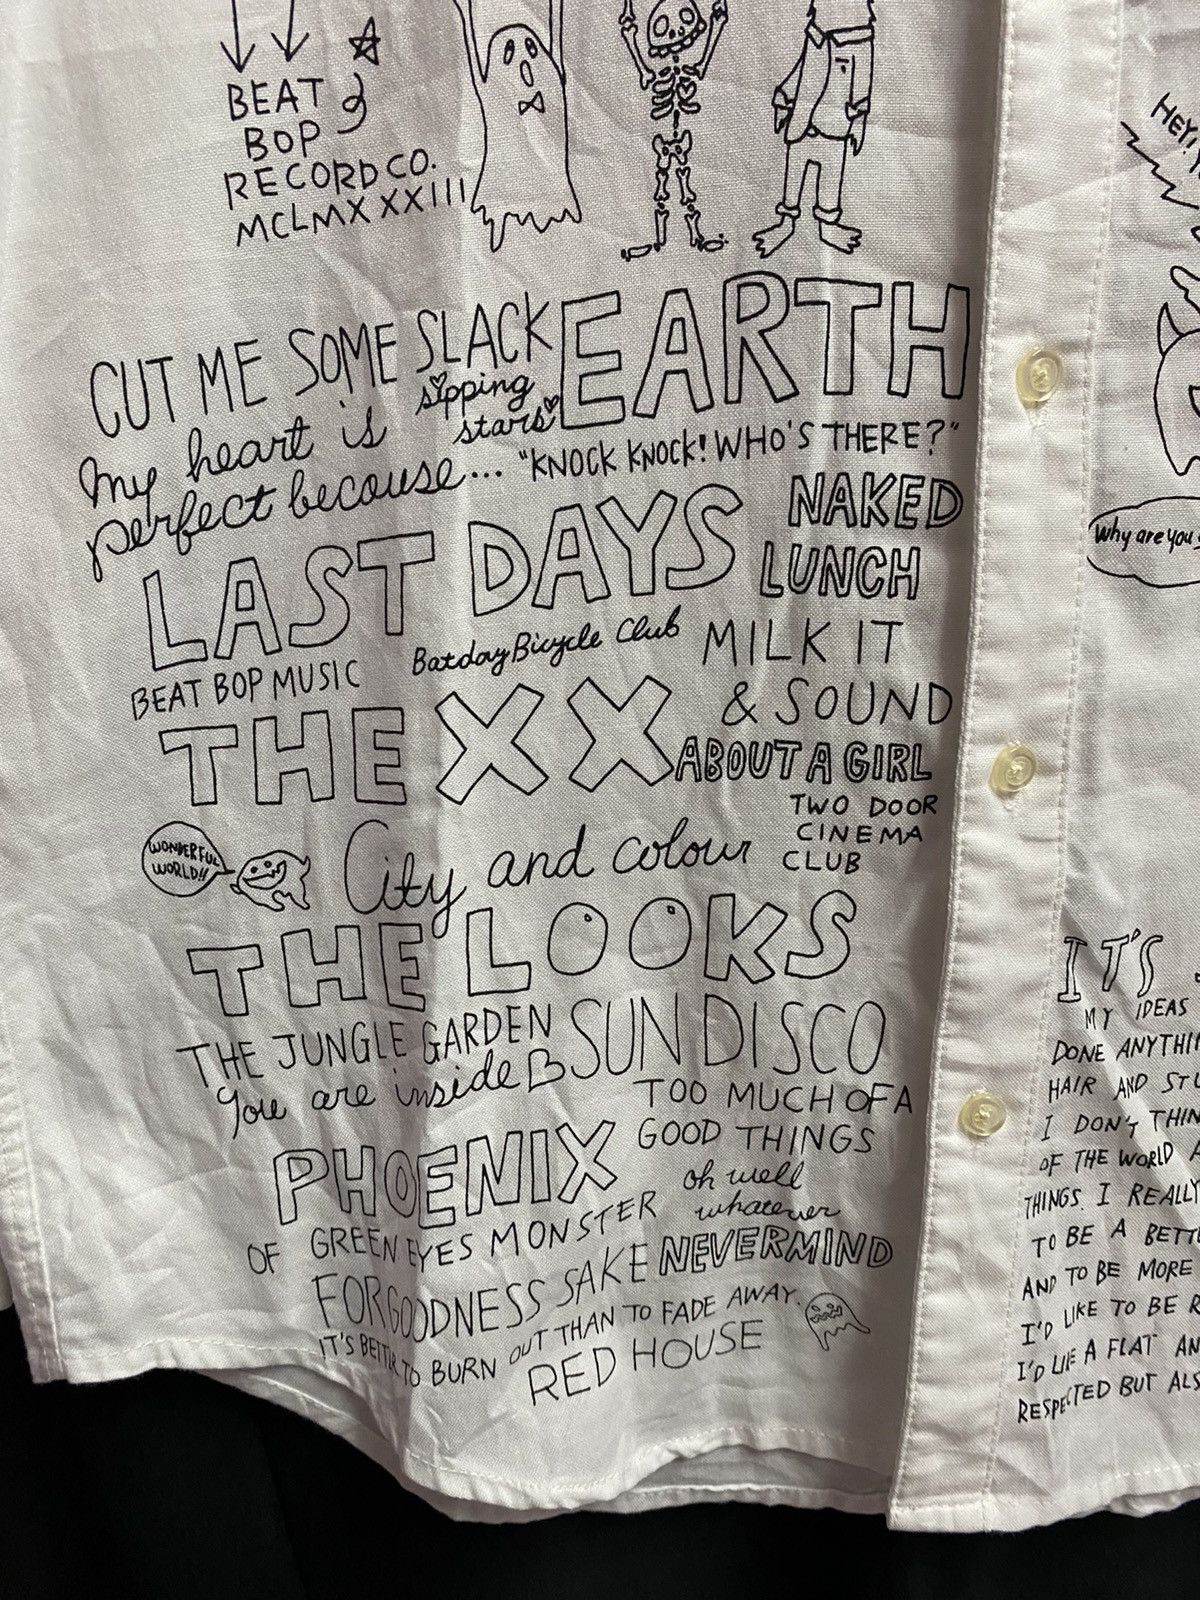 BEAT
BOP
RECORD CO.
MCLMXXXXIII
HEY!
CUT ME SOME SLACK
EARTH
sipping
stars
My heart is
perfect becouse...
"KNOCK KNOCK! WHO'S THERE?"
LAST DAYS
NAKED
LUNCH
Why are you
BEAT BOP MUSIC
Batday Bicycle Club
MILK IT
& SOUND
THE XX
ABOUT A GIRL
TWO DOOR
CINEMA
CLUB
WONDERFUL
WORLD!!
City and colour
THE LOOKS
THE JUNGLE GARDEN
SUN DISCO
You are inside
TOO MUCH OF A
GOOD THINGS
PHOENIX
oh well
whatever
OF GREEN EYES MONSTER
NEVERMIND
FOR GOODNESS SAKE
IT'S BETTER TO BURN OUT THAN TO FADE AWAY.
RED HOUSE
IT'S
MY IDEAS
DONE ANYTHI
HAIR AND STU
I DON'T THIN
OF THE WORLD A
THINGS. I REALLY
TO BE A BETTE
AND TO BE MORE
I'D LIKE TO BE R
I'D LIE A FLAT AN
RESPECTED BUT ALS